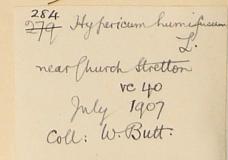 284
279 Hypericum humifusum
L.
near Church Stretton
VC 40
July 1907
Coll: W. Butt.